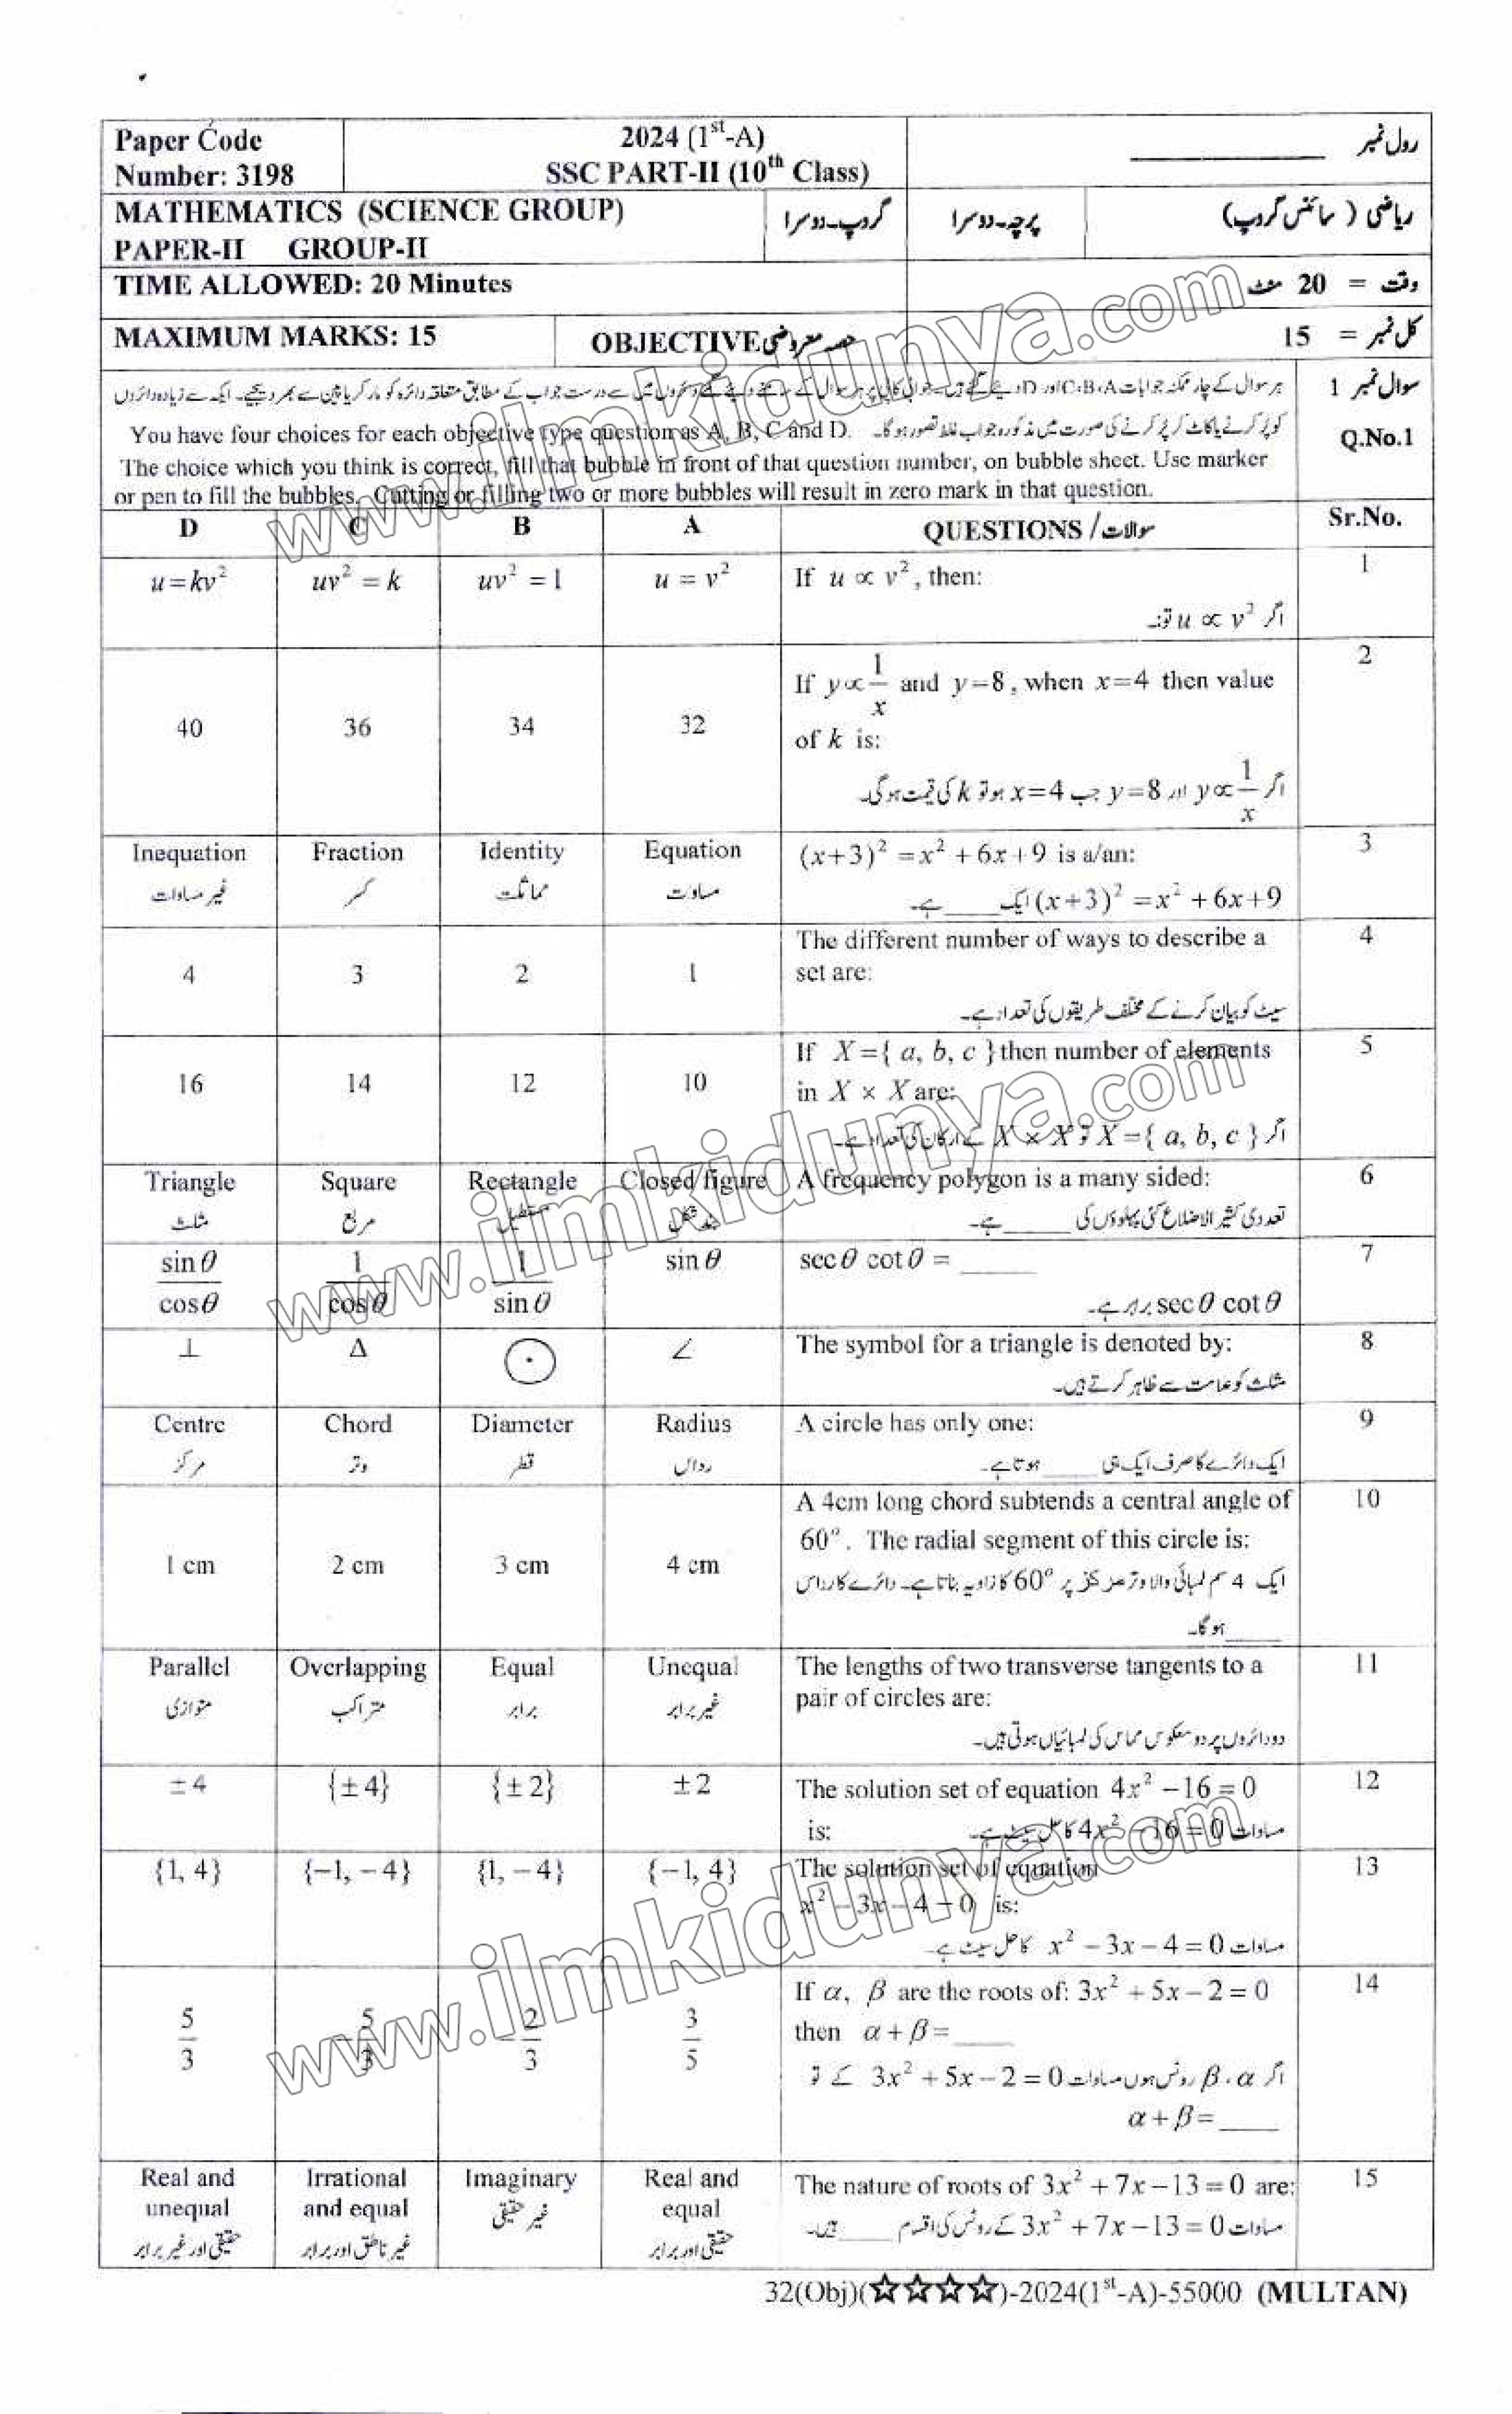 Paper Code
Number: 3198
2024 (1st-A)
SSC PART-II (10th Class)
رول نمبر ____________
MATHEMATICS (SCIENCE GROUP)
PAPER-II GROUP-II
گروپ۔دوسرا
پرچہ۔دوسرا
ریاضی ( سائنس گروپ)
TIME ALLOWED: 20 Minutes
وقت = 20 منٹ
MAXIMUM MARKS: 15
OBJECTIVE حصہ معروضی
کل نمبر = 15
سوال نمبر 1
Q.No.1
ہر سوال کے چار ممکنہ جوابات A،B،C اور D دیئے گئے ہیں۔ جوابی کاپی پر ہر سوال کے سامنے دیئے گئے دائروں میں سے درست جواب کے مطابق متعلقہ دائرہ کو مارکر یا پین سے بھر دیجیے۔ ایک سے زیادہ دائروں
You have four choices for each objective type question as A, B, C and D. کو پُر کرنے یا کاٹ کر پُر کرنے کی صورت میں مذکورہ جواب غلط تصور ہوگا۔
The choice which you think is correct, fill that bubble in front of that question number, on bubble sheet. Use marker
or pen to fill the bubbles. Cutting or filling two or more bubbles will result in zero mark in that question.
D C B A QUESTIONS / سوالات Sr.No.
u = kv² uv² = k uv² = 1 u = v² If u ∝ v², then: 1
اگر u ∝ v² تو:۔
40 36 34 32 If y ∝ 1/x and y = 8, when x = 4 then value 2
of k is:
اگر y ∝ 1/x اور y = 8 جب x = 4 ہو تو k کی قیمت ہوگی۔
Inequation Fraction Identity Equation (x+3)² = x² + 6x + 9 is a/an: 3
غیر مساوات کسر مماثلت مساوت (x+3)² = x² + 6x + 9 ایک ____ ہے۔
4 3 2 1 The different number of ways to describe a 4
set are:
سیٹ کو بیان کرنے کے مختلف طریقوں کی تعداد ہے۔
16 14 12 10 If X = { a, b, c } then number of elements 5
in X × X are:
اگر X = { a, b, c } تو X × X کے ارکان کی تعداد ہے۔
Triangle Square Rectangle Closed figure A frequency polygon is a many sided: 6
مثلث مربع مستطیل بند شکل تعددی کثیر الاضلاع کئی پہلوؤں کی _____ ہے۔
sinθ/cosθ 1/cosθ 1/sinθ sinθ secθ cotθ = _____ 7
secθ cotθ برابر ہے۔
⊥ Δ ⊙ ∠ The symbol for a triangle is denoted by: 8
مثلث کو علامت سے ظاہر کرتے ہیں۔
Centre Chord Diameter Radius A circle has only one: 9
مرکز وتر قطر رداس ایک دائرے کا صرف ایک ہی ____ ہوتا ہے۔
1 cm 2 cm 3 cm 4 cm A 4cm long chord subtends a central angle of 10
60°. The radial segment of this circle is:
ایک 4 سم لمبائی والا وتر مرکز پر 60° کا زاویہ بناتا ہے۔ دائرے کا رداس
____ہو گا۔
Parallel Overlapping Equal Unequal The lengths of two transverse tangents to a 11
pair of circles are:
متوازی متراکب برابر غیر برابر دو دائروں پر دو معکوس مماس کی لمبائیاں ہوتی ہیں۔
±4 {±4} {±2} ±2 The solution set of equation 4x² − 16 = 0 12
is: مساوات 4x² − 16 = 0 کا حل سیٹ ہے۔
{1, 4} {−1, −4} {1, −4} {−1, 4} The solution set of equation 13
x² − 3x − 4 = 0 is:
مساوات x² − 3x − 4 = 0 کا حل سیٹ ہے۔
5/3 −5/3 −2/3 3/5 If α, β are the roots of: 3x² + 5x − 2 = 0 14
then α + β = ____
اگر α، β روٹس ہوں مساوات 3x² + 5x − 2 = 0 کے تو
α + β = ____
Real and unequal Irrational and equal Imaginary Real and equal The nature of roots of 3x² + 7x − 13 = 0 are: 15
حقیقی اور غیر برابر غیر ناطق اور برابر غیر حقیقی حقیقی اور برابر مساوات 3x² + 7x − 13 = 0 کے روٹس کی اقسام ____ ہیں۔
32(Obj)(☆☆☆☆)-2024(1st-A)-55000 (MULTAN)
www.ilmkidunya.com
www.ilmkidunya.com
www.ilmkidunya.com